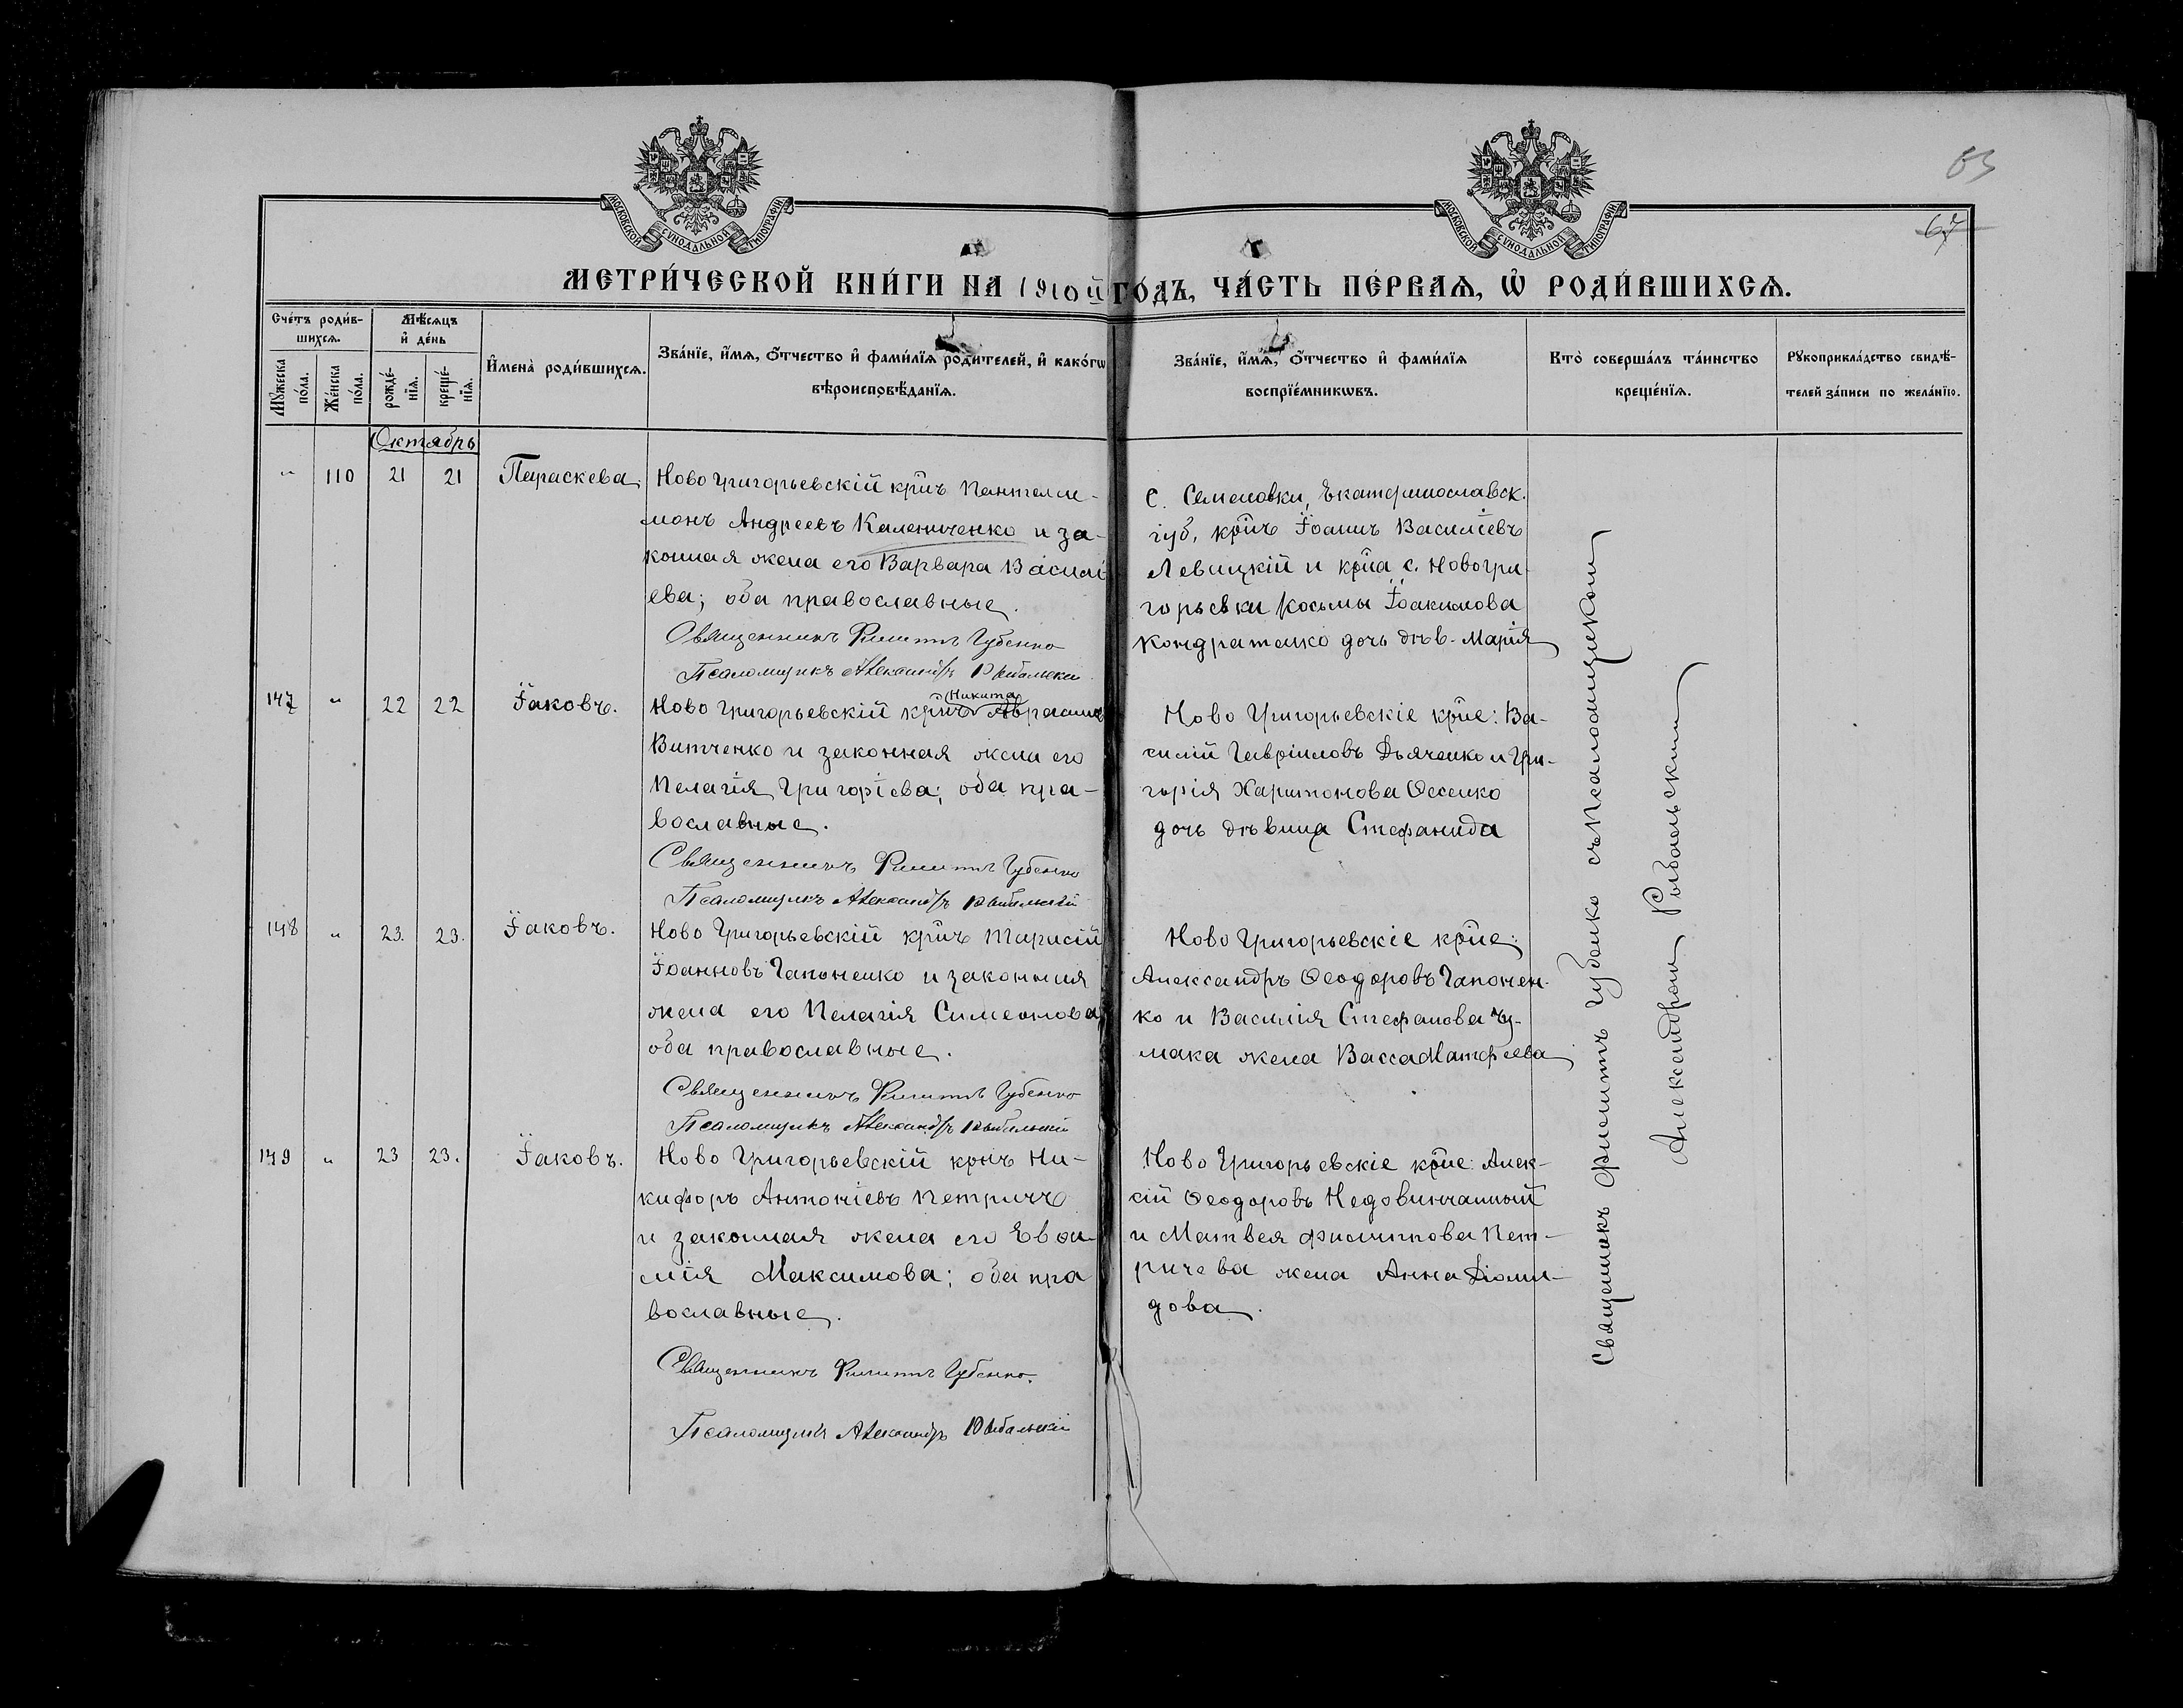 63
67
МОСКОВСКОЙ СѴНОДАЛЬНОЙ ТИПОГРАФІИ
МОСКОВСКОЙ СѴНОДАЛЬНОЙ ТИПОГРАФІИ
МЕТРИ́ЧЕСКОЙ КНИ́ГИ НА 1910й ГО́ДЪ, ЧА́СТЬ ПЕ́РВАѦ, Ѡ҆ РОДИ́ВШИХСѦ.
Сче́тъ роди́в-
шихсѧ.
Мꙋжеска по́ла.
Же́нска по́ла.
Мѣ́сѧцъ и҆ де́нь
рожде́-нїѧ.
креще́-нїѧ.
И҆мена̀ роди́вшихсѧ.
Зва́нїе, и҆́мѧ, ѻ҆́тчество и҆ фами́лїѧ роди́телей, и҆ како́гѡ
вѣроисповѣ́данїѧ.
Зва́нїе, и҆́мѧ, ѻ҆́тчество и҆ фами́лїѧ
воспрїе́мникѡвъ.
Кто̀ соверша́лъ та́инство
креще́нїѧ.
Рꙋкоприкла́дство свидѣ́-
телей за́писи по жела́нїю.
Октябрь
" 110 21 21 Параскева.
Ново Григорьевскій кр̃нъ Пантелеи-
монъ Андреевъ Калениченко и за-
конная жена его Варвара Василі
ева; оба православные.
Священникъ Филиппъ Губенко
Псаломщикъ Александръ Рыбальскій
с. Семеновки, Екатеринославск.
губ. кр̃нъ Іоаннъ Василіевъ
Левицкій и кр̃на с. Новогри
горьевки Косьмы Іоакимова
Кондратенко дочь дѣв. Марія
147 " 22 22 Іаковъ.
Никита
Ново Григорьевскій кр̃нъ Авраамовъ
Витченко и законная жена его
Пелагія Григоріева; оба пра-
вославные.
Священникъ Филиппъ Губенко
Псаломщикъ Александръ Рыбальскій
Ново Григорьевскіе кр̃не: Ва-
силій Гавріиловъ Дьяченко и Гри-
горія Харитонова Оссенко
дочь дѣвица Стефанида
148 " 23. 23. Іаковъ.
Ново Григорьевскій кр̃нъ Тарасій
Іоанновъ Гапоненко и законная
жена его Пелагія Симеонова
оба православные.
Священникъ Филиппъ Губенко
Псаломщикъ Александръ Рыбальскій
Ново Григорьевскіе кр̃не:
Александръ Ѳеодоровъ Гапонен-
ко и Василія Стефанова Чу-
мака жена Васса Матфеева
149 " 23 23. Іаковъ.
Ново Григорьевскій крнъ Ни-
кифоръ Антоніевъ Петричъ
и законная жена его Евфи-
мія Максимова; оба пра
вославные.
Священникъ Филиппъ Губенко.
Псаломщикъ Александръ Рыбальскій
Ново Григорьевскіе кр̃не: Алек-
сій Ѳеодоровъ Недовинчанный
и Матвея Филиппова Пет-
ричева жена Анна Діоми-
дова.
Священникъ Филиппъ Губенко съ Псаломщикомъ
Александромъ Рыбальскимъ